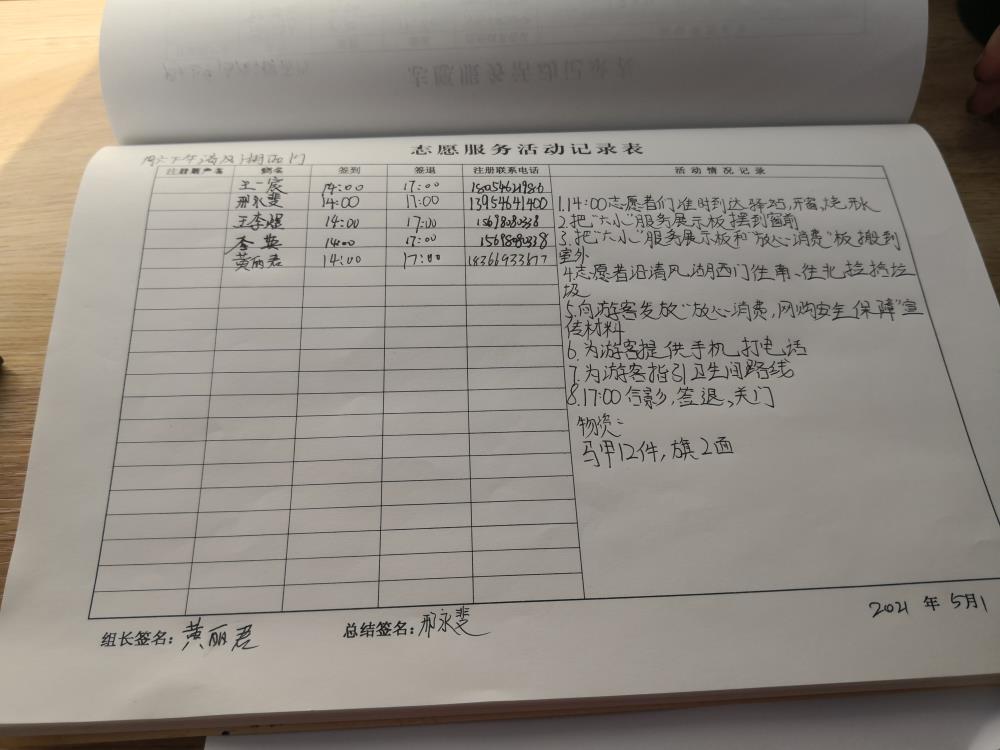 志愿服务活动记录表
周六下午清风湖西门
注册账户名 姓名 签到 签退 注册联系电话 活动情况记录
王一宸 14:00 17:00
邢永斐 14:00 17:00 13954641400
王李煜 14:00 17:00 15698080338
李英 14:00 17:00 15698080338
黄丽君 14:00 17:00 18366933677
1.14:00志愿者们准时到达驿站,开窗,烧水
2.把“大小”服务展示板摆到窗前
3.把“大小”服务展示板和“放心消费”板搬到
室外
4.志愿者沿清风湖西门往南、往北捡拾垃
圾
5.向游客发放“放心消费,网购安全保障”宣
传材料
6.为游客提供手机打电话
7.为游客指引卫生间路线
8.17:00合影,签退、关门
物资:
马甲12件,旗2面
组长签名:黄丽君 总结签名:邢永斐
2021年5月1